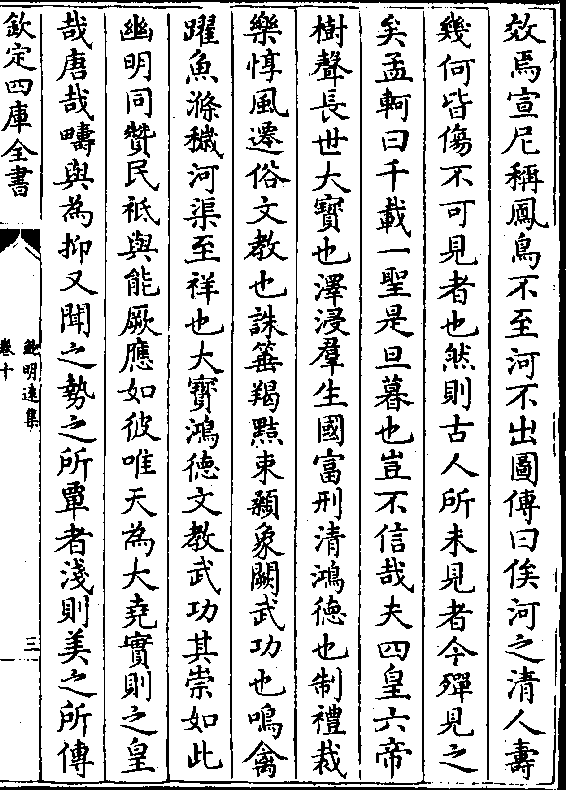 效焉宣尼稱鳳鳥不至河不出圖傳曰俟河之清人壽
幾何皆傷不可見者也然則古人所未見者今殫見之
矣孟軻曰千載一聖是旦暮也豈不信哉夫四皇六帝
樹聲長世大寶也澤浸羣生國富刑清鴻德也制禮裁
樂惇風遷俗文教也誅箠羯黠束顙象闕武功也鳴禽
躍魚滌穢河渠至祥也大寳鴻德文教武功其崇如此
幽明同贊民祗與能厥應如彼唯天為大堯實則之皇
哉唐哉疇與為抑又聞之勢之所覃者淺則美之所傳
欽定四庫全書
鮑明遠集
卷十
三